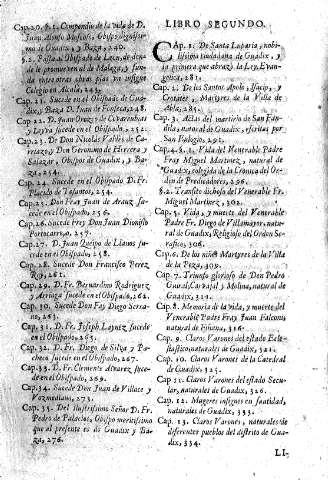 Cap. 20. §. 1. Compendio de la vida de D.
Juan Alonso Moscoso, Obispo
de Guadix, y Baza, 240.
§. 2. Passa al Obispado de Leon, de donde
le promueven al de Malaga, y funda
entre otras obras pias un insigne
Colegio en Alcalà, 243.
Cap. 21. Sucede en el Obispado de Guadix,
y Baza D. Juan
Cap. 22. D. Juan Orozco de Covarrubias
y Leyva sucede en el Obispado, 252.
Cap. 23. De Don Nicolas Valdes de
y Don Geronimo de Herrera y
Salazar, Obispos de Guadix, y Baza,
254.
Cap. 24. Sucede en el Obispado D. Fr.
Placido de Tosantos, 254.
Cap. 25. Don Fray Juan de Arauz sucede
en el Obispado, 256.
Cap. 26. Sucede Frey Don Juan Dionisio
Portocarrero, 257.
Cap. 27. D. Juan Queipo de Llanos sucede
en el Obispado, 258.
Cap. 28. Sucede Don Francisco Perez
Roy, 261.
Cap. 29. D. Fr. Bernardino Rodriguez
y Arriaga sucede en el Obispado, 262.
Cap. 30. Sucede Don Fray Diego Serrano,
263.
Cap. 31. D. Fr. Joseph Laynez sucede
en el Obispado, 265.
Cap. 32. D. Fr. Diego de Silva y Pacheco
sucede en el Obispado, 267.
Cap. 33. D. Fr. Clemente Alvarez sucede
en la sede, 269.
Cap. 34. Sucede Don Juan de Villace y
Vozmediano, 273.
Cap. 35. Del Ilustrissimo Señor D. Fr.
Pedro de Palacios, Obispo meritissimo
que al presente es de Guadix y Baza,
276.
LIBRO SEGUNDO.
CAp. 1. De Santa Luparia, nobilissima
ciudadana de Guadix, y
la primera que abrazò la Ley Evangelica,
281.
Cap. 2. De los Santos Apolo, Isacio, y
Crotates, Martyres de la Villa de
Abla, 284.
Cap. 3. Actas del martirio de San Fandila,
natural de Guadix, escritas por
San Eulogio, 291.
Cap. 4. §. 1. Vida del Venerable Padre
Fray Miguel Martinez, natural de
Guadix, colegida de la Cronica del Orden
de Predicadores, 296.
§. 2. Transito dichoso del Venerable Fr.
Miguel Martinez, 302.
Cap. 5. Vida, y muerte del Venerable
Padre Fr. Diego de Villamayor, natural
de Guadix, Religioso del Orden Serafico,
306.
Cap. 6. De los niños Martyres de la Villa
de la Peza, 309.
Cap. 7. Triunfo glorioso de Don Pedro
Guiral, Carvajal y Molina, natural de
Guadix, 319.
Cap. 8. Memoria de la vida, y muerte del
Venerable Padre Fray Juan Falconi
natural de Fiñana, 316.
Cap. 9. Claros Varones del estado Eclesiastico
naturales de Guadix, 321.
Cap. 10. Claros Varones de la Catedral
de Guadix, 325.
Cap. 11. Claros Varones del estado Secular,
naturales de Guadix, 326.
Cap. 12. Mugeres insignes en santidad,
naturales de Guadix, 333.
Cap. 13. Claros Varones, naturales de
diferentes pueblos del distrito de Guadix,
334.
LI-